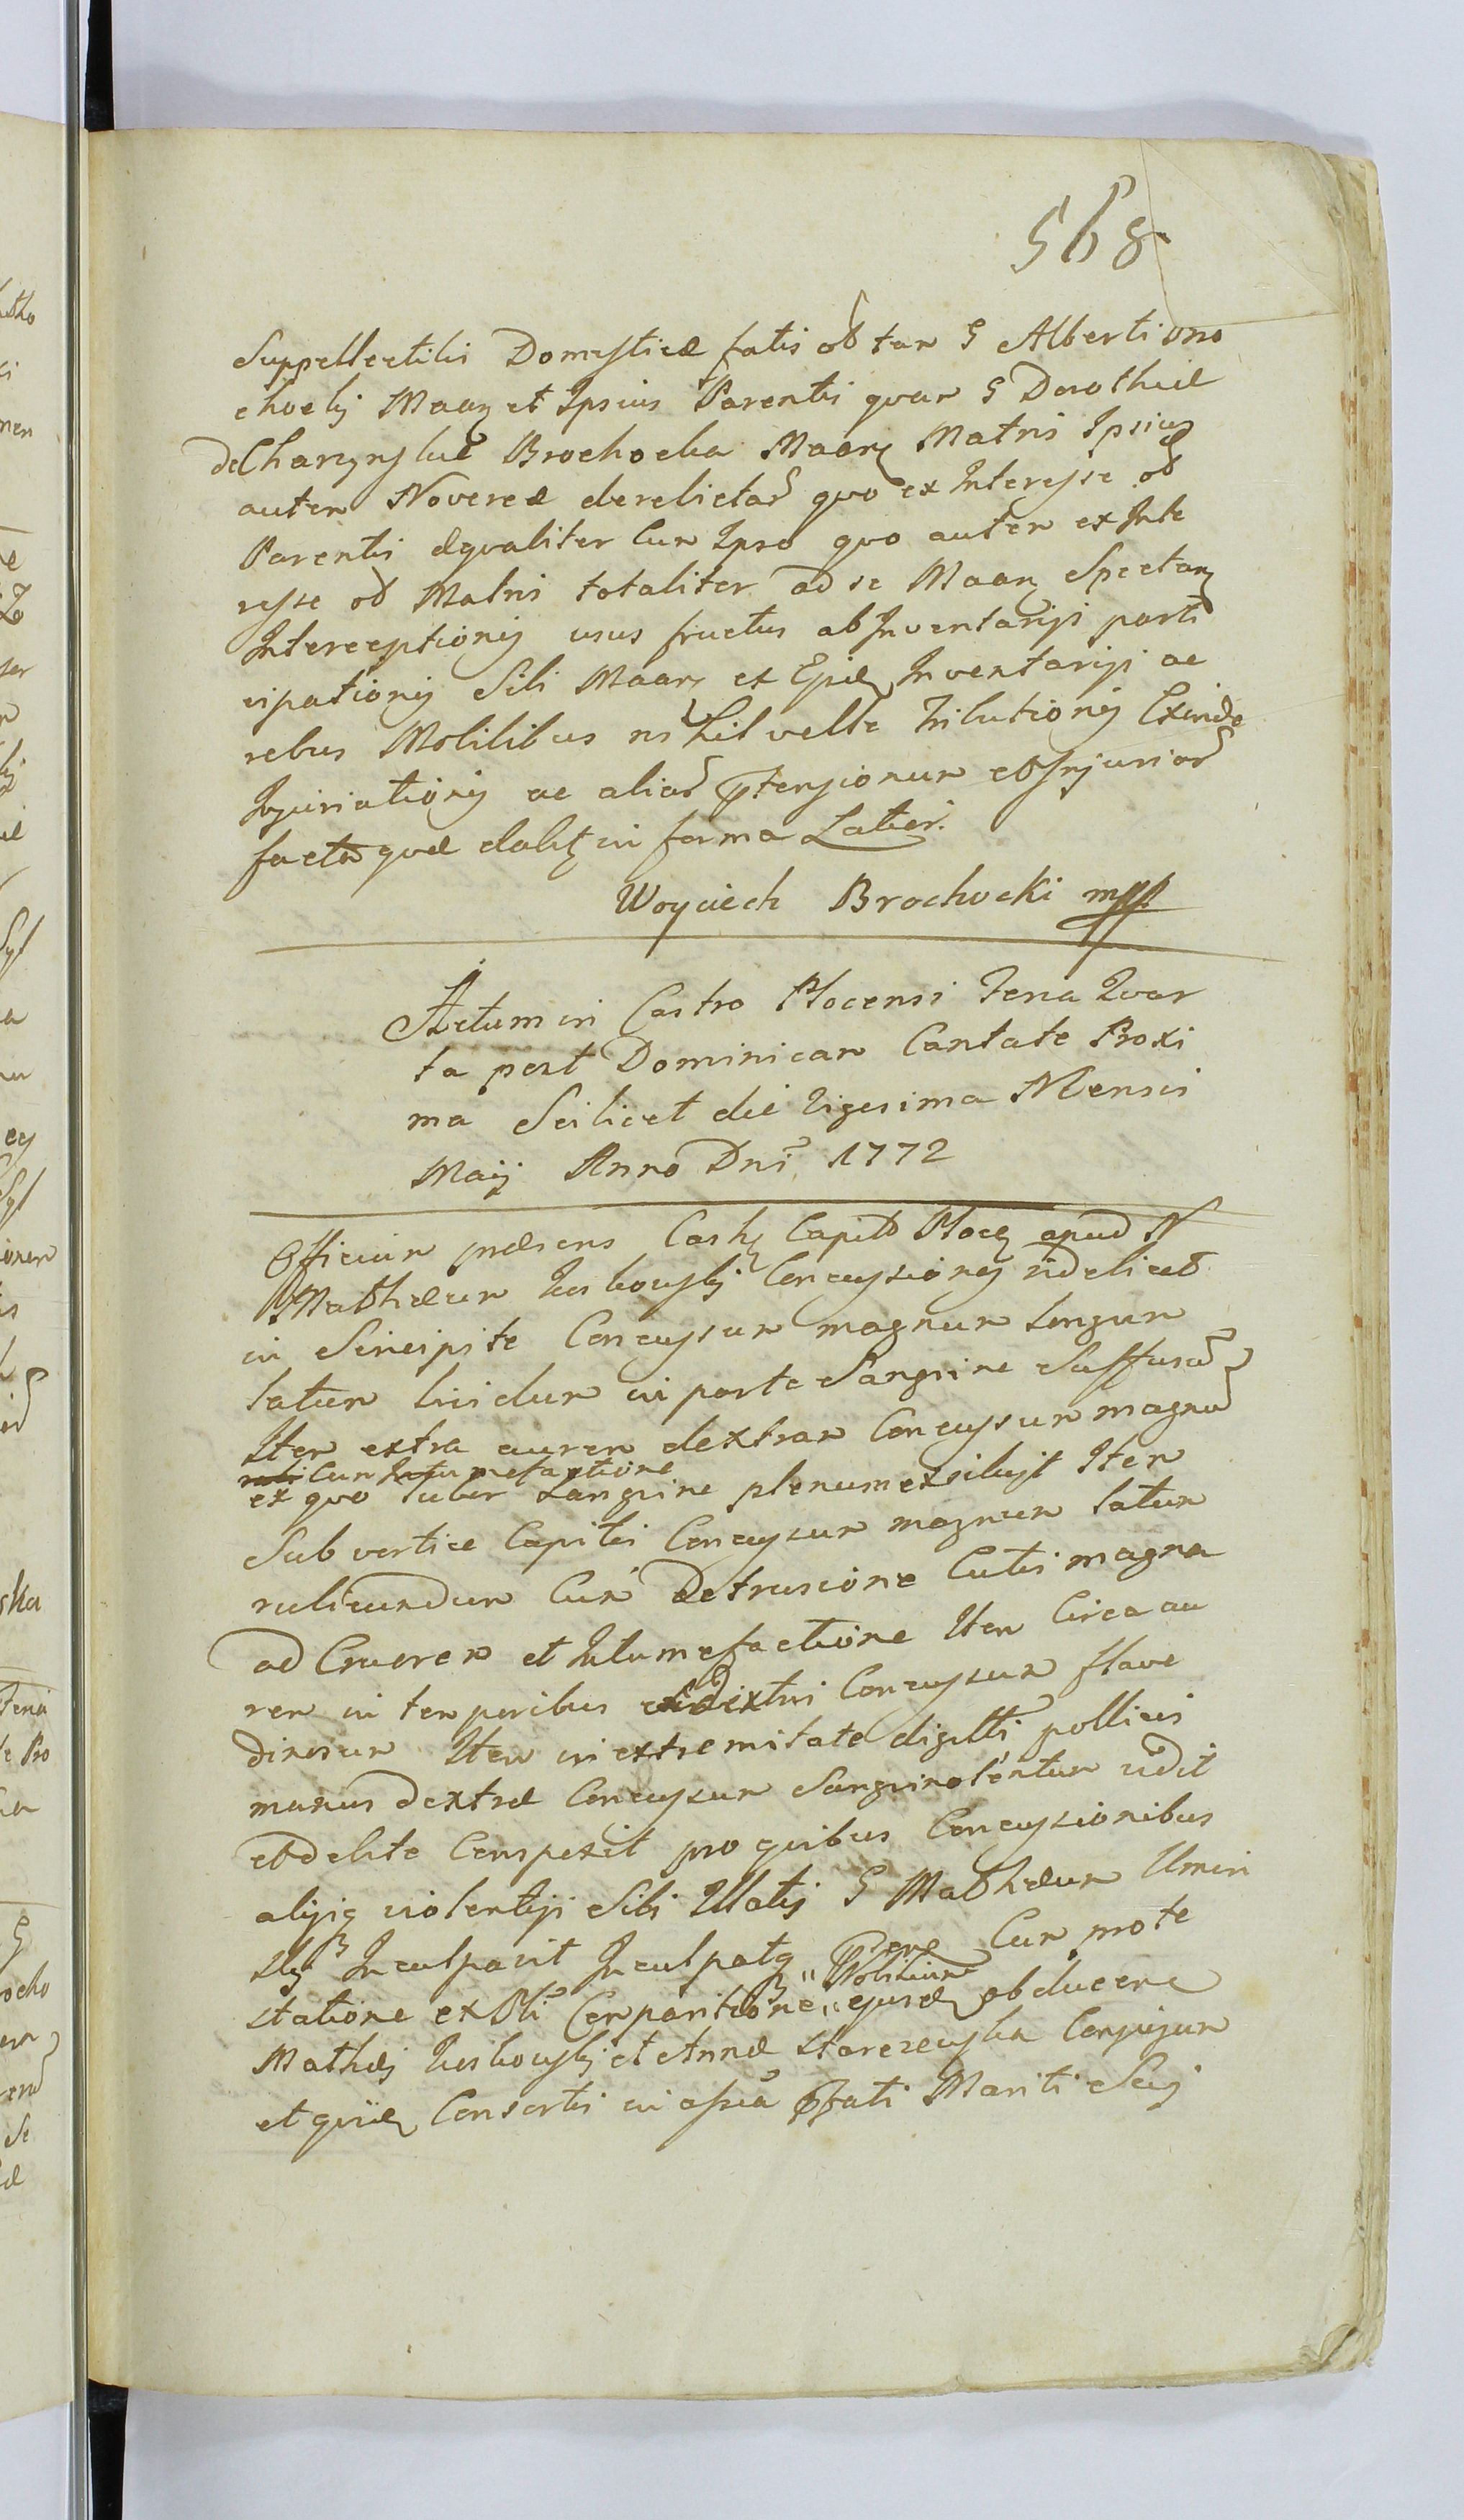 568
Suppellectilis Domesticæ fatis ob tam G Alberti Bro
chocki Maan et Ipsius Parentis quam G Dorotheæ
de Charzynskie Brochocka Maan Matris Ipsius
autem Novercæ derelictar quo ex Interesse ob
Parentis æqualiter Cum Ipso quo autem ex Inte
resse ob Matris totaliter ad se Maan Spectan
Interceptionis usus fructus ab Inventarijs parti
cipationis Sibi Maan ex Ejsd Inventarijs ac
rebus Mobilibus nihil velle tributionis Exinde
Injuriationis ac aliar Ptensionum et Injuriar
factæ quæ dabit in forma Latior.
Woyciech Brochocki mpp
Actum in Castro Plocensi Feria Quar
ta post Dominicam Cantate Proxi
ma Scilicet die Vigesima Mensis
Maij Anno Dni 1772
Officium præsens Castr Capitl Plocen apud N
Mathæum Concussiones videlicet
in Sincipite Concussum magnum longum
latum lividum in parte Sanguine Suffusum
Item extra aurem dextram Concussum magnum
Cum Intumefactione
ex quo tuber Sanguine plenum exilijt Item
Sub vertice Capitis Concussum magnum latum
rubicundum Cum Detrusione Cutis magna
ad Cruorem et Intumefactione Item Circa au
rem in temporibus dextris Concussum flave
dinosum Item in extremitate digitti pollicis
manus dextræ Concussum Sanguinolentum vidit
et debite Conspexit pro quibus Concussionibus
alijsq violentijs Sibi Illatis G Mathæum Umin
ski Inculpavit Inculpatq Præns Cum prote
statione ex Pti Comparitione "Nobilium" ejusd obducere
Mathæj et Annæ Starczewska Conjugum
et quid Consortis in assia Pfati Mariti Sui